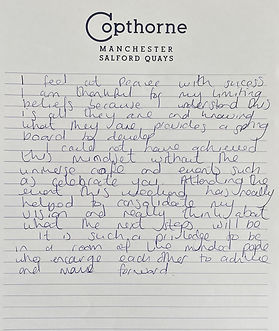 Copthorne
MANCHESTER
SALFORD QUAYS
I feel at peace with success
I am thankful for my limiting
beliefs because I understand this
is all they are and knowing
what they are provides a spring
board to develop
I could not have achieved
this mindset without the
universe code and events such
as celebrate you. Attending the
event this weekend has really
helped to consolidate my
vision and really think about
what the next steps will be
It is such a privilege to be
in a room of like minded people
who encourage each other to achieve
and move forward.